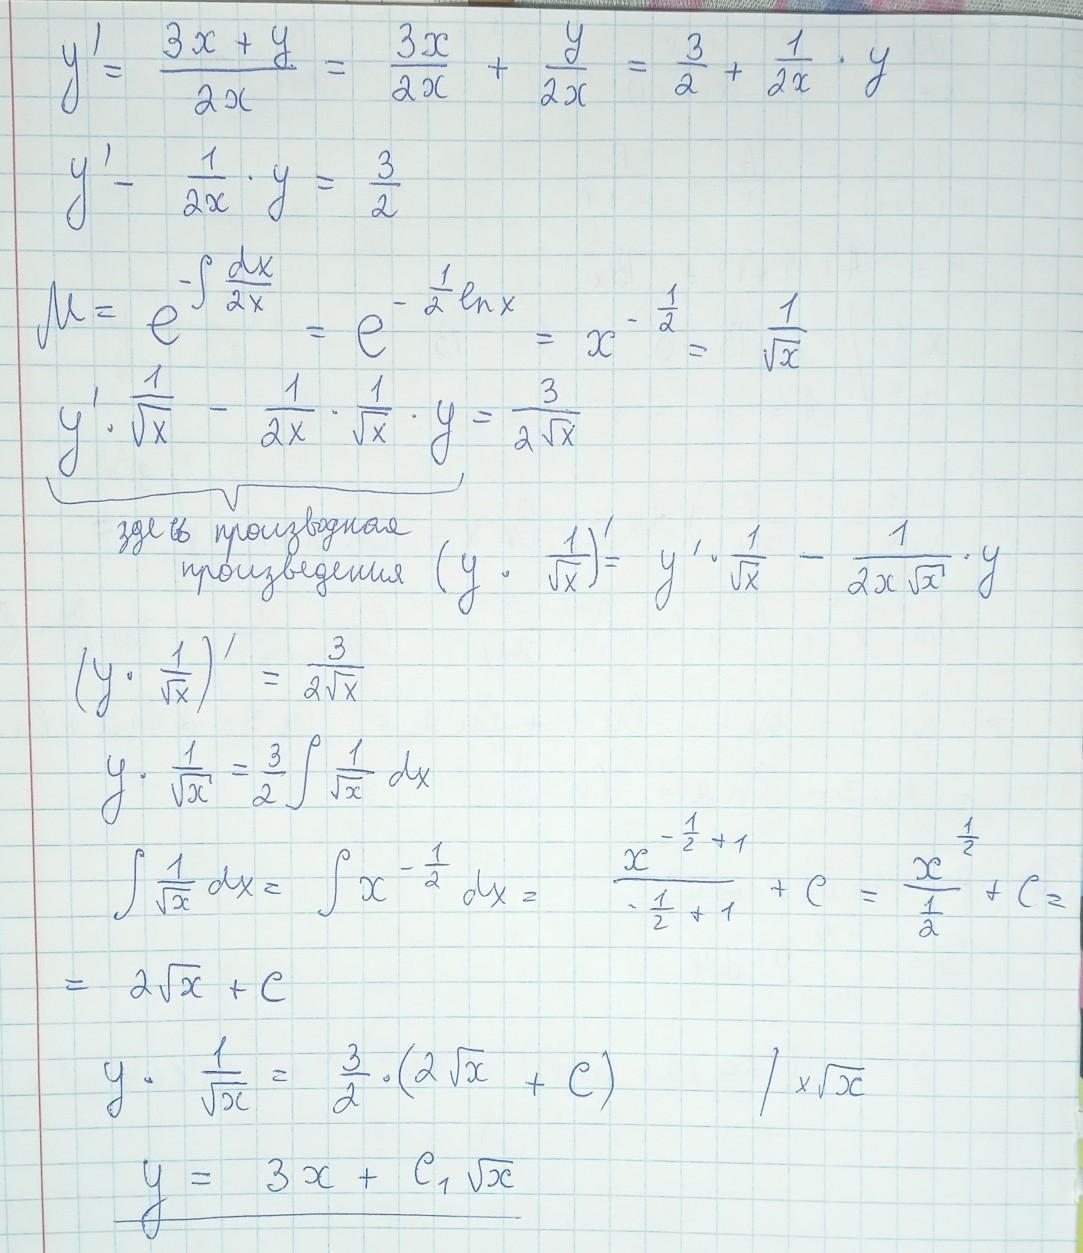 y' = (3x + y)/(2x) = 3x/(2x) + y/(2x) = 3/2 + 1/(2x) · y
y' - 1/(2x) · y = 3/2
M = e^(-∫ dx/(2x)) = e^(-1/2 ln x) = x^(-1/2) = 1/√x
y' · 1/√x - 1/(2x) · 1/√x · y = 3/(2√x)
здесь производная
произведения (y · 1/√x)' = y' · 1/√x - 1/(2x√x) · y
(y · 1/√x)' = 3/(2√x)
y · 1/√x = 3/2 ∫ 1/√x dx
∫ 1/√x dx = ∫ x^(-1/2) dx = x^(-1/2 + 1)/(-1/2 + 1) + C = x^(1/2)/(1/2) + C =
= 2√x + C
y · 1/√x = 3/2 · (2√x + C) / ×√x
y = 3x + C₁√x